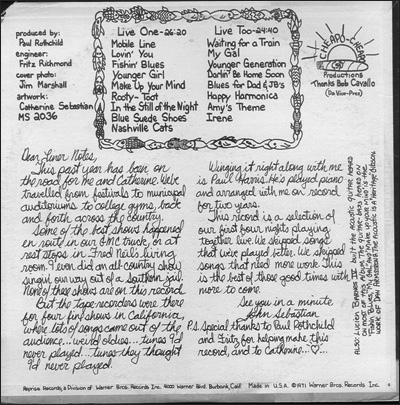 produced by:
Paul Rothchild
engineer:
Fritz Richmond
cover photo:
Jim Marshall
artwork:
Catherine Sebastian
MS 2036
Live One-26:20
Mobile Line
Lovin' You
Fishin' Blues
Younger Girl
Make Up Your Mind
Rooty-Toot
In the Still of the Night
Blue Suede Shoes
Nashville Cats
Live Too-24:40
Waiting for a Train
My Gal
Younger Generation
Darlin' Be Home Soon
Blues for Dad & JB's
Happy Harmonica
Amy's Theme
Irene
CHEAPO-CHEAPO
Productions
Thanks Bob Cavallo
(Da Vice-Pres)
Dear Liner Notes,
This past year has been on
the road for me and Catherine. We've
travelled from festivals to municipal
auditoriums to college gyms, back
and forth across the country.
Some of the best shows happened
en route in our GMC truck, or at
rest stops in Fred Neil's living
room. I even did an all-country show
singin' our way out of a
None of these shows are on this record.
But the tape recorders were there
for four fine shows in California,
where lots of songs came out of the
audience...weird oldies...tunes I'd
never played....tunes they thought
I'd never played.
Winging it right along with me
is Paul Harris. He's played piano
and arranged with me on record
for two years.
This record is a selection of
our first four nights playing
together live. We skipped songs
that we've played better. We skipped
songs that need more work. This
is the best of those good times with
more to come.
See you in a minute
John Sebastian
P.S. Special thanks to Paul Rothchild
and Fritz for helping make this
record, and to Catherine...
Reprise Records, a Division of Warner Bros. Records Inc. 4000 Warner Blvd. Burbank, Calif. Made in U.S.A. © 1971 Warner Bros. Records Inc.